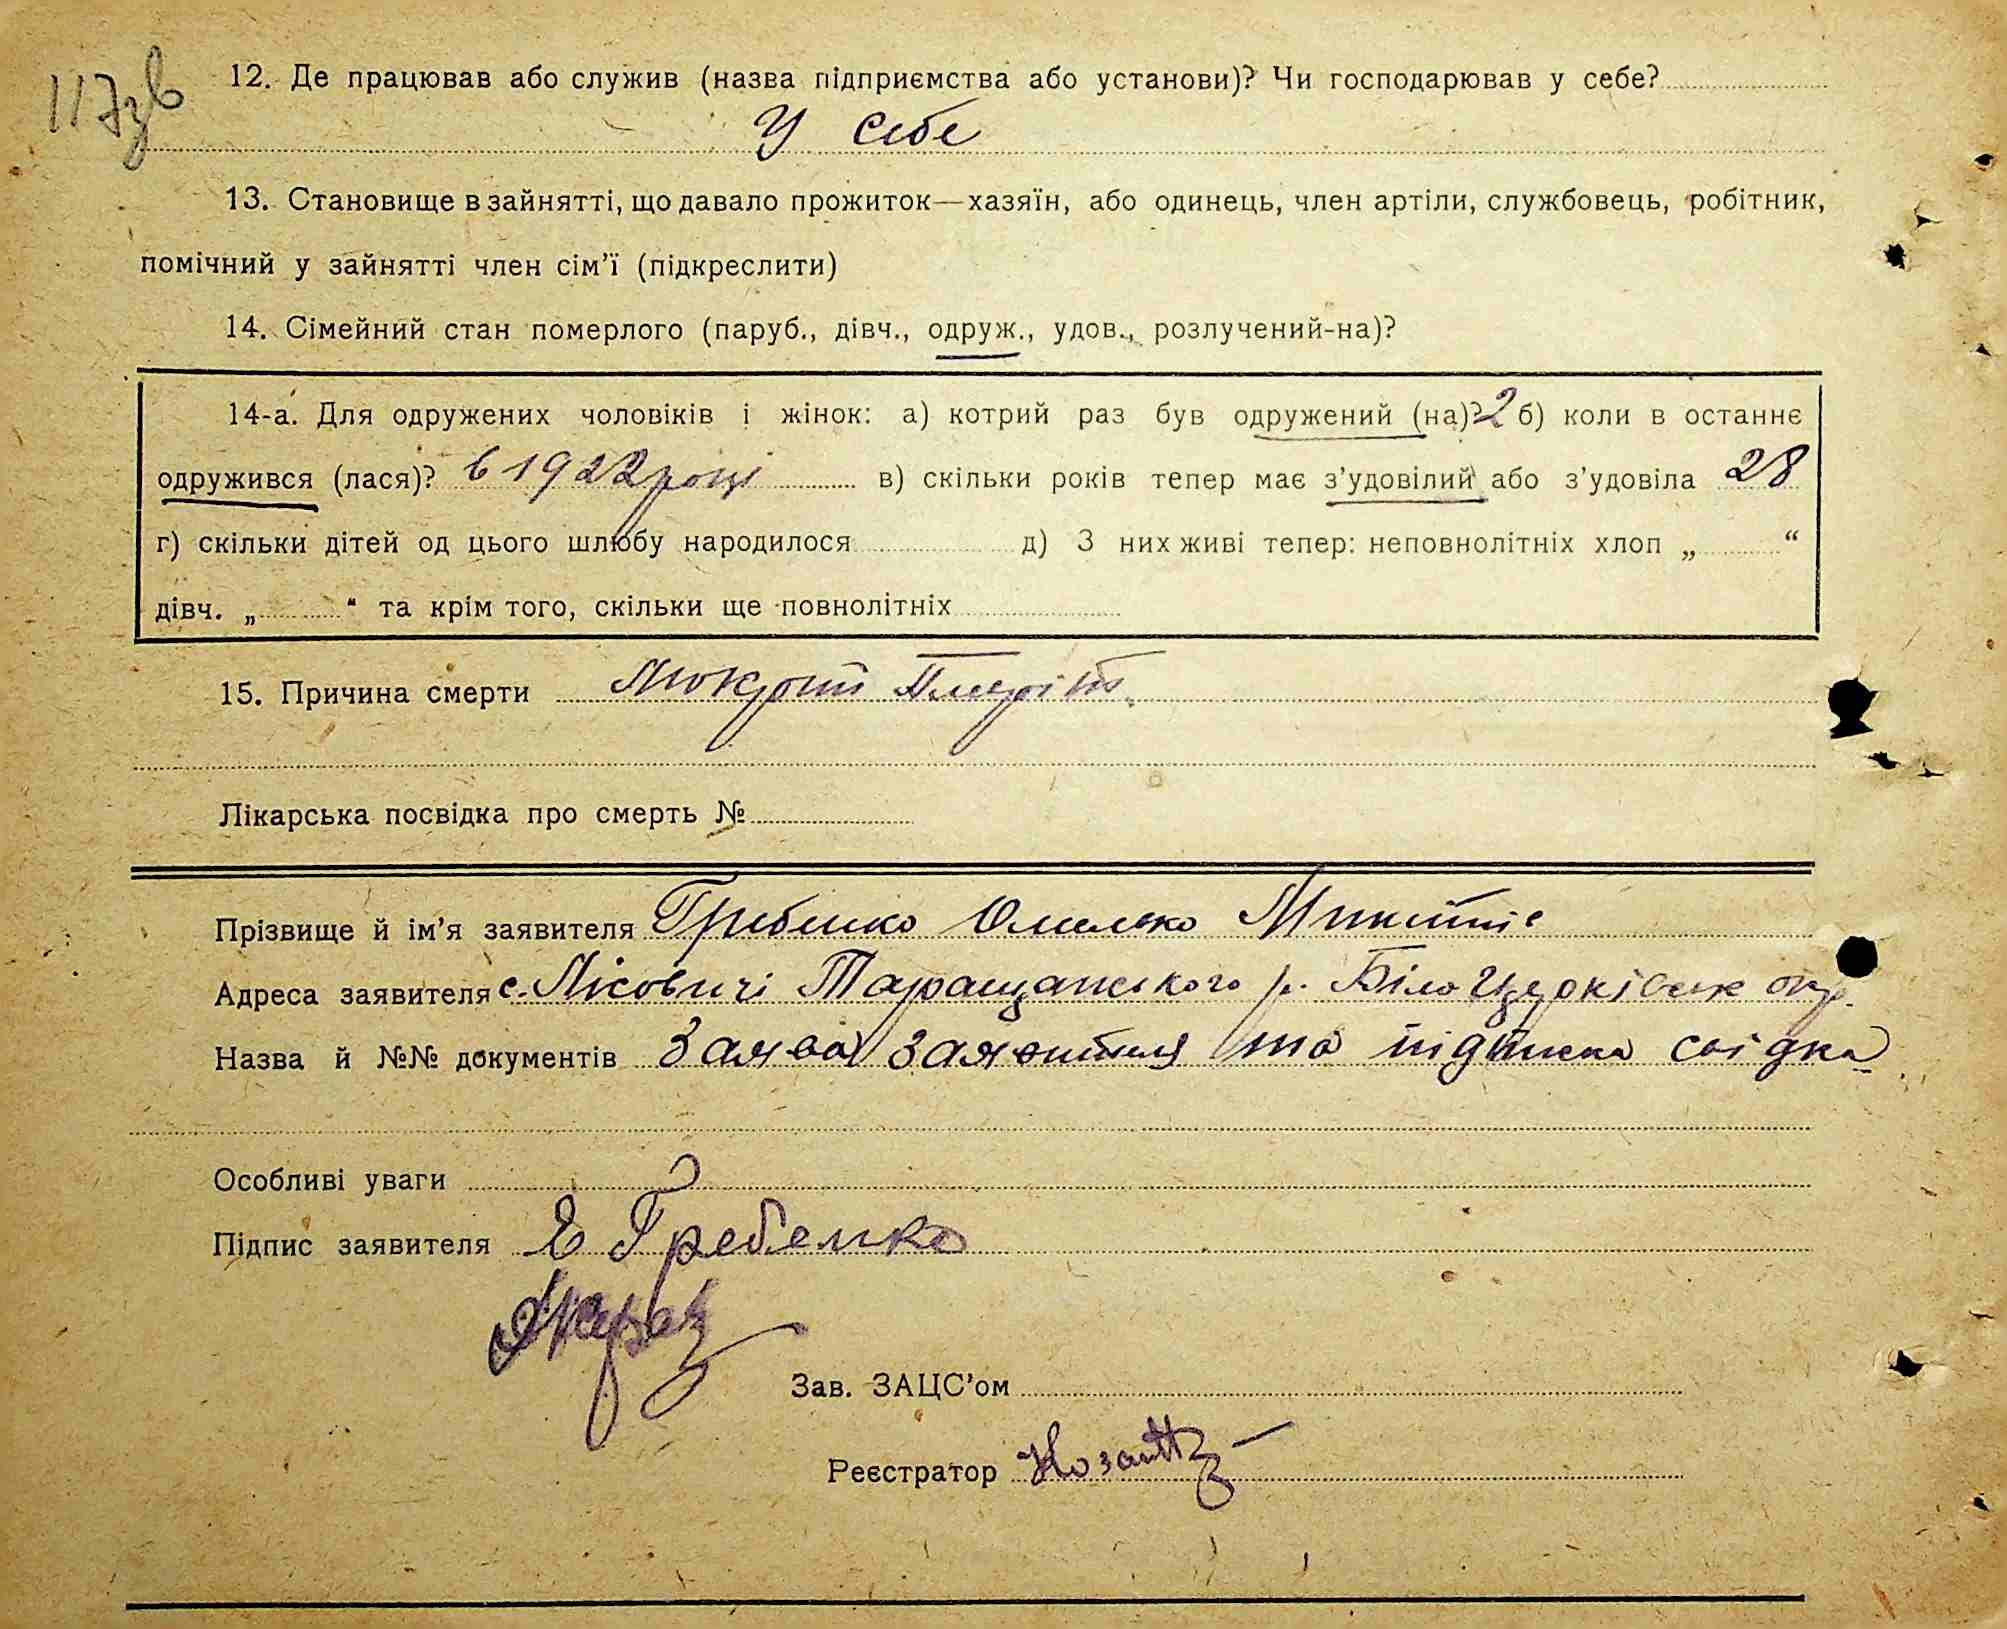 117зв
12. Де працював або служив (назва підприємства або установи)? Чи господарював у себе?
У себе
13. Становище в зайнятті, що давало прожиток—хазяїн, або одинець, член артіли, службовець, робітник,
помічний у зайнятті член сім'ї (підкреслити)
14. Сімейний стан померлого (паруб., дівч., одруж., удов., розлучений-на)?
14-а. Для одружених чоловіків і жінок: а) котрий раз був одружений (на)? 2 б) коли в останнє
одружився (лася)? в 1922 році в) скільки років тепер має з'удовілий або з'удовіла 28
г) скільки дітей од цього шлюбу народилося д) З них живі тепер: неповнолітніх хлоп „ “
дівч. „ “ та крім того, скільки ще повнолітніх
15. Причина смерти
Лікарська посвідка про смерть №
Прізвище й ім'я заявителя Гребенко Омелько
Адреса заявителя с. Лісовичі Таращанського р. Білоцерківськ окр.
Назва й №№ документів Заява заявителя та підписка свідка
Особливі уваги
Підпис заявителя Е Гребенко
Зав. ЗАЦС'ом
Реєстратор